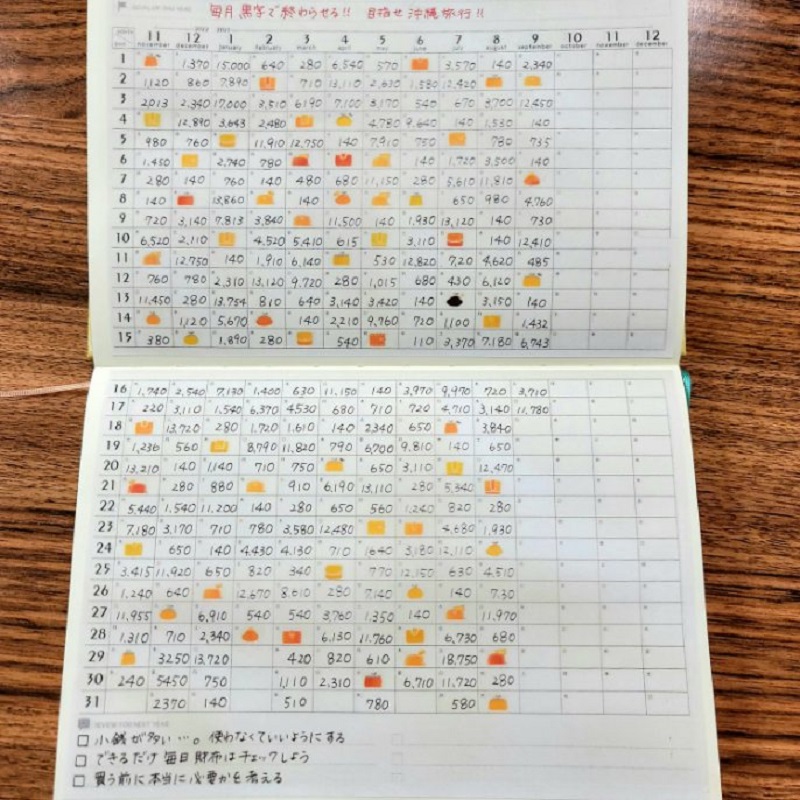 毎月 黒字で終わらせる!! 目指せ 沖縄旅行!!
11 12 2 3 4 5 6 7 8 9 10 11 12
november december January February march april may june july august september october november december
1 1,370 15,000 640 280 6,540 570 3,570 140 2,340
2 1,120 860 7,890 710 13,110 2,630 1,580 12,420
3 2,013 2,340 17,000 3,510 6190 7,100 3,170 540 670 3,700 12,450
4 12,890 3,643 2,480 4,780 9,640 140 1,530 140
5 980 760 11,910 12,750 140 7,910 750 780 735
6 1,450 2,740 780 140 1,720 3,500 140
7 280 140 760 140 480 680 11,150 280 5,610 11,810
8 140 13,860 140 650 980 4,760
9 720 3,140 7,813 3,840 11,500 140 1,930 13,120 140 730
10 6,520 2,110 4,520 5,410 615 3,110 140 12,410
11 12,750 140 1,910 6,140 530 12,820 7,20 4,620 485
12 760 780 2,310 13,120 9,720 280 1,015 680 430 6,120
13 11,450 280 13,754 810 640 3,140 3,420 140 3,150 140
14 1,120 5,670 140 2,210 9,760 720 1,100 1,432
15 380 1,890 280 540 110 3,370 7,180 6,743
16 1,740 2,540 7,130 1,400 630 11,150 140 3,970 9,970 720 3,710
17 220 3,110 1,540 6,370 4530 680 710 720 4,710 3,140 11,780
18 13,720 280 1,720 1,610 140 2340 650 3,840
19 1,236 560 8,790 11,820 790 6,700 9,810 140 650
20 13,210 140 1,140 710 750 650 3,110 12,470
21 280 880 910 6,190 13,110 280 5,340
22 5,440 1,540 11,200 140 280 650 560 1,240 820 280
23 7,180 3,170 710 780 3,580 12,480 4,680 1,930
24 650 140 4,430 4,130 710 1640 3,180 12,110
25 3,415 11,920 650 820 340 770 12,150 630 4,510
26 1,240 640 12,670 8,610 280 7,140 140 7,30
27 11,955 6,910 540 540 3,760 1,350 140 11,970
28 1,310 710 2,340 6,130 11,760 6,730 680
29 3250 13,720 420 820 610 18,750
30 240 5450 750 1,110 2,310 6,710 11,720 280
31 2370 140 510 780 580
REVIEW FOR NEXT YEAR
小銭が多い…。使わなくていいようにする
できるだけ 毎日 財布はチェックしよう
買う前に本当に必要かを考える